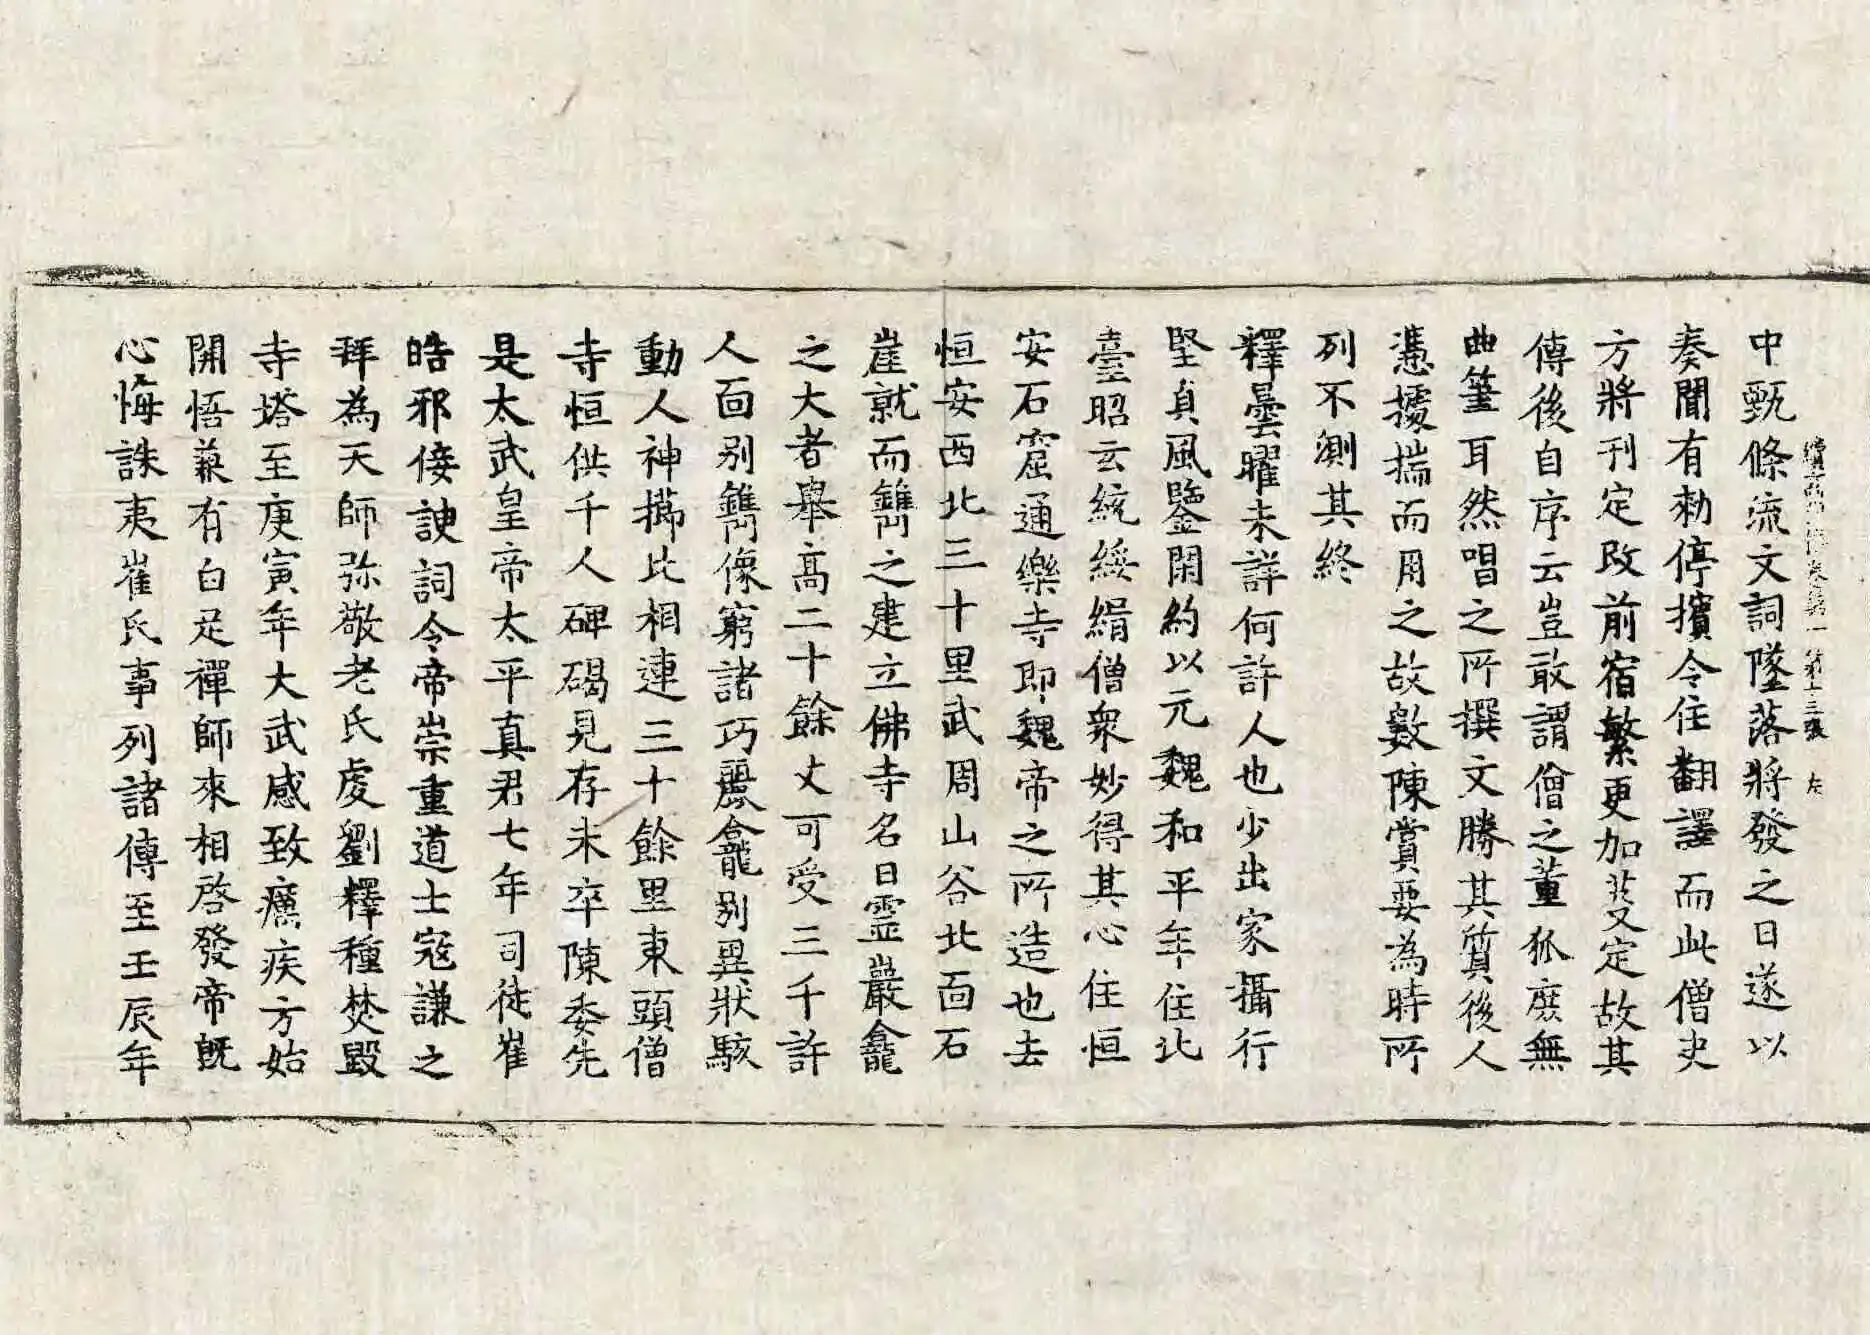 續高僧傳卷第一 第十三張 左
中甄條流文詞墜落將發之日遂以
奏聞有勑停擯令住翻譯而此僧史
方將刊定改前宿繁更加芟定故其
傳後自序云豈敢謂僧之董狐庶無
曲筆耳然唱之所撰文勝其質後人
憑據揣而用之故數陳賞要為時所
列不測其終
釋曇曜未詳何許人也少出家攝行
堅貞風鑒閑約以元魏和平年住北
臺昭玄統綏緝僧衆妙得其心住恒
安石窟通樂寺即魏帝之所造也去
恒安西北三十里武周山谷北面石
崖就而鐫之建立佛寺名曰靈巖龕
之大者舉高二十餘丈可受三千許
人面別鐫像窮諸巧麗龕別異狀駭
動人神櫛比相連三十餘里東頭僧
寺恒供千人碑碣見存未卒陳委先
是太武皇帝太平真君七年司徒崔
皓邪佞諛詞令帝崇重道士寇謙之
拜為天師弥敬老氏虔劉釋種焚毀
寺塔至庚寅年大武感致癘疾方始
開悟兼有白足禪師來相啓發帝既
心悔誅夷崔氏事列諸傳至壬辰年